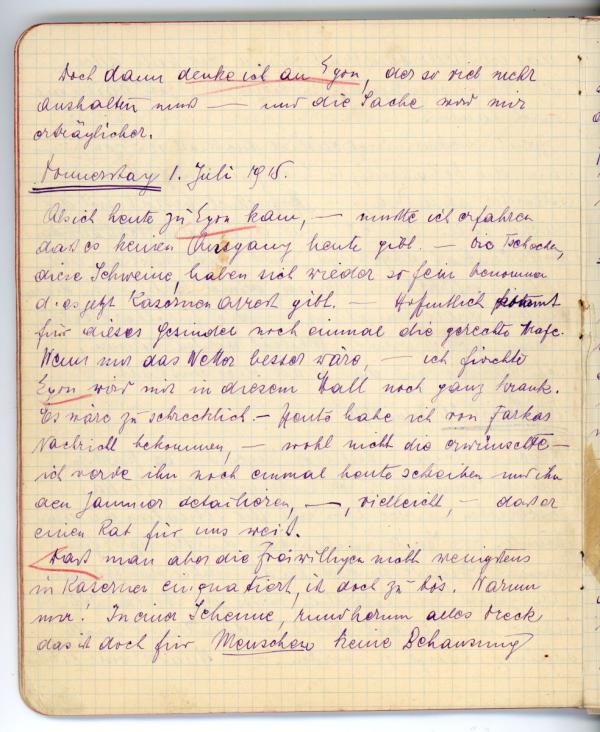 Doch dann denke ich an Egon, der so viel mehr
aushalten muss — und die Sache wird mir
erträglicher.
Donnerstag 1. Juli 1915.
Als ich heute zu Egon kam, — musste ich erfahren
dass es keinen Ausgang heute gibt. — Die Tschechen,
diese Schweine, haben sich wieder so fein benommen
d. es jetzt Kasernen Arrest gibt. — Hoffentlich kommt
für dieses Gesindel noch einmal die gerechte Strafe.
Wenn nur das Wetter besser wäre, — ich fürchte
Egon wird mir in diesem Stall noch ganz krank.
Es wäre zu schrecklich. — Heute habe ich von Farkas
Nachricht bekommen, — wohl nicht die erwünschte —
ich werde ihm noch einmal heute schreiben und ihm
den Jammer detailieren, —, vielleicht, — dass er
einen Rat für uns weis.
Dass man aber die Freiwilligen nicht wenigstens
in Kasernen einquatiert, ist doch zu bös. Warum
nur! In einer Scheune, rundherum alles Dreck
das ist doch für Menschen keine Behausung